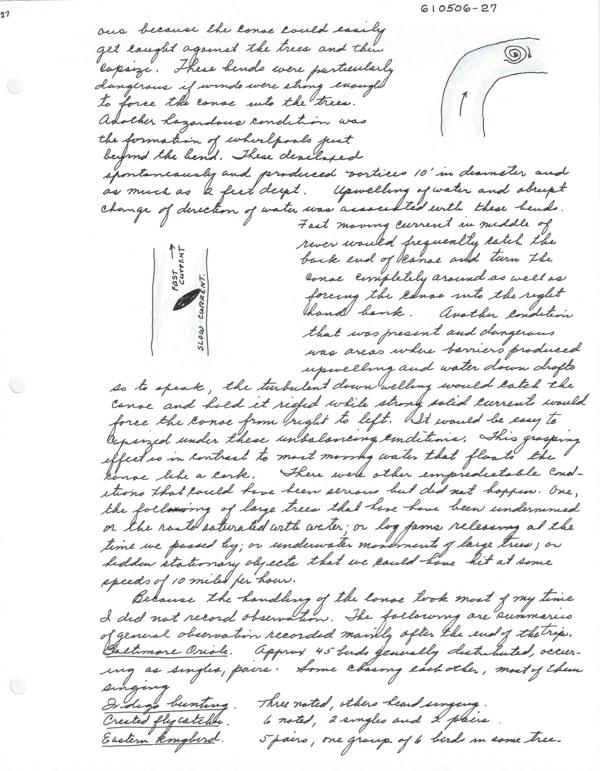 27
610506-27
ous because the canoe could easily
get caught against the trees and then
capsize. These bends were particularly
dangerous if winds were strong enough
to force the canoe into the trees.
Another hazardous condition was
the formation of whirlpools just
beyond the bend. These developed
spontaneously and produced vortices 10' in diameter and
as much as 2 feet deept. Upwelling of water and abrupt
change of direction of water was associated with these bends.
Fast moving current in middle of
river would frequently catch the
back end of canoe and turn the
canoe completely around as well as
forcing the canoe into the right
hand bank. Another condition
that was present and dangerous
was areas where barriers produced
upwelling and water down drafts
FAST CURRENT
SLOW CURRENT
so to speak, the turbulent down welling would catch the
canoe and hold it rigid while strong solid currents would
force the canoe from right to left. It would be easy to
capsized under these unbalancing conditions. This grasping
effect is in contrast to most moving water that floats the
canoe like a cork. There were other unpredictable cond-
itions that could have been serious but did not happen. One,
the following of large trees that have been undermined
or the roots saturated with water; or log jams releasing at the
time we passed by; or underwater movement of large trees; or
hidden stationary objects that we could have hit at some
speeds of 10 miles per hour.
Because the handling of the canoe took most of my time
I did not record observation. The following are summaries
of general observation recorded mainly after the end of the trip.
Baltimore Oriole. Approx 45 birds generally distributed, occur-
ing as singles, pairs. Some chasing each other, most of them
singing
Indigo bunting. Three noted, others heard singing.
Crested flycatcher. 6 noted, 2 singles and 2 pairs.
Eastern Kingbird. 5 pairs, one group of 6 bird in some tree.